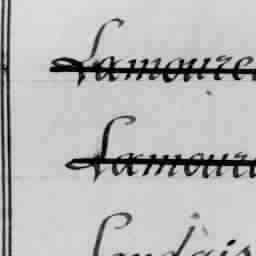 Lamoure
Lamour
Landais